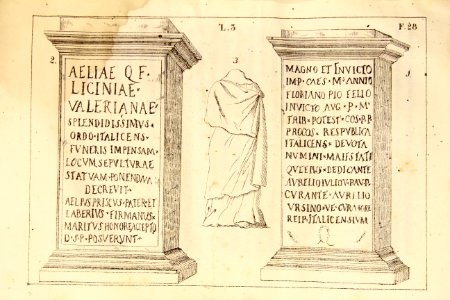 L. 3
F. 28
2.
AELIAE Q F
LICINIAE
VALERIANAE
SPLENDIDISSIMVS
ORDO·ITALICENS·
FVNERIS IMPENSAM
LOCVM SEPVLTVRAE
STATVAM·PONENDVM
DECREVIT
AELIVS PRISCVS PATER ET
LABERIVS FIRMANVS
MARITVS HONORE ACCEPTO
D·S·P·POSVERVNT
3
1
MAGNO ET INVICTO
IMP·CAES·M·ANNIO
FLORIANO PIO FELIO
INVICTO AVG·P·M·
TRIB·POTEST·COS·PP
PROCOS·RESPVBLICA
ITALICENS·DEVOTA
NVMINI MAIESTATI
QVE EIVS·DEDICANTE
AVRELIO IVLIO
CVRANTE·AVRELIO
VRSINO·VE·CVRATORE
REIP·ITALICENSIVM